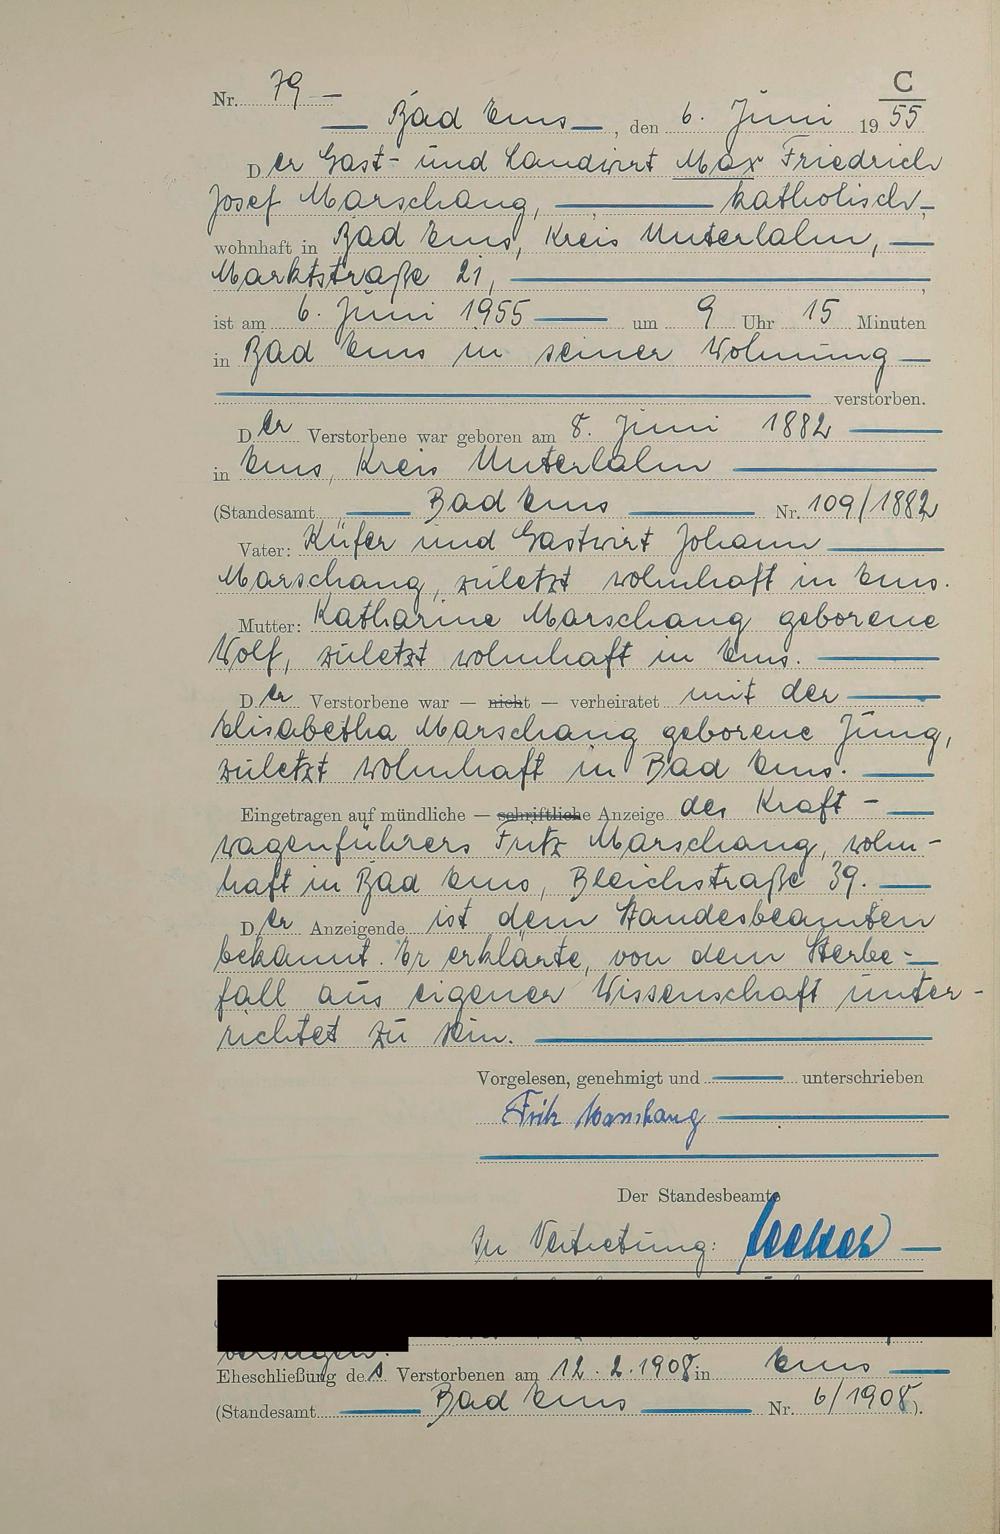 C
Nr. 79
Bad Ems, den 6. Juni 1955
Der Gast- und Landwirt Max Friedrich
Josef Marschang, katholisch
wohnhaft in Bad Ems, Kreis Unterlahn,
Marktstraße 21,
ist am 6. Juni 1955 um 9 Uhr 15 Minuten
in Bad Ems in seiner Wohnung
verstorben.
Der Verstorbene war geboren am 8. Juni 1882
in Ems, Kreis Unterlahn
(Standesamt Bad Ems Nr. 109/1882
Vater: Küfer und Gastwirt Johann
Marschang, zuletzt wohnhaft in Ems.
Mutter: Katharine Marschang geborene
Wolf, zuletzt wohnhaft in Ems.
Der Verstorbene war — nicht — verheiratet mit der
Elisabetha Marschang geborene Jung,
zuletzt wohnhaft in Bad Ems.
Eingetragen auf mündliche — schriftliche Anzeige des Kraft-
wagenführers Fritz Marschang, wohn-
haft in Bad Ems, Bleichstraße 39.
Der Anzeigende ist dem Standesbeamten
bekannt. Er erklärte, von dem Sterbe-
fall aus eigener Wissenschaft unter-
richtet zu sein.
Vorgelesen, genehmigt und unterschrieben
Fritz Marschang
Der Standesbeamte
In Vertretung:
Eheschließung des Verstorbenen am 12.2.1908 in Ems
(Standesamt Bad Ems Nr. 6/1908).